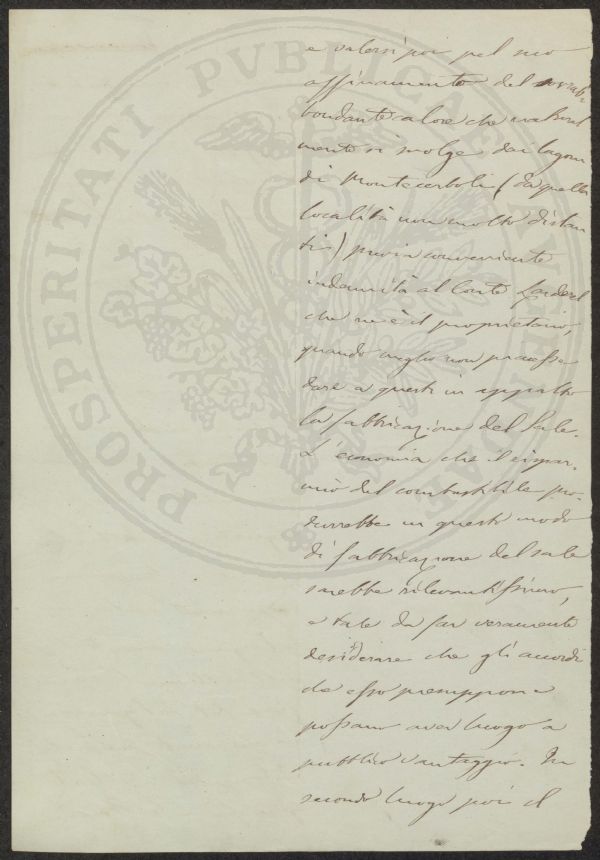 PROSPERITATI PVBLICAE AVGENDAE
e valersi poi pel suo
affinamento del sovrab-
bondante calore che natural
mente si svolge dai lagoni
di Montecerboli (da quella
località non molto distan
ti) previa conveniente
indennità al Conte Larderel
che ne è il proprietario,
quando meglio non piacesse
dare a questi in appalto
la fabbricazione del Sale.
L'economia che il rispar-
mio del combustibile pro-
durrebbe in questo modo
di fabbricazione del sale
sarebbe rilevantissimo,
e tale da far veramente
desiderare che gli accordi
che esso presuppone
possano aver luogo a
pubblico vantaggio. In
secondo luogo poi il